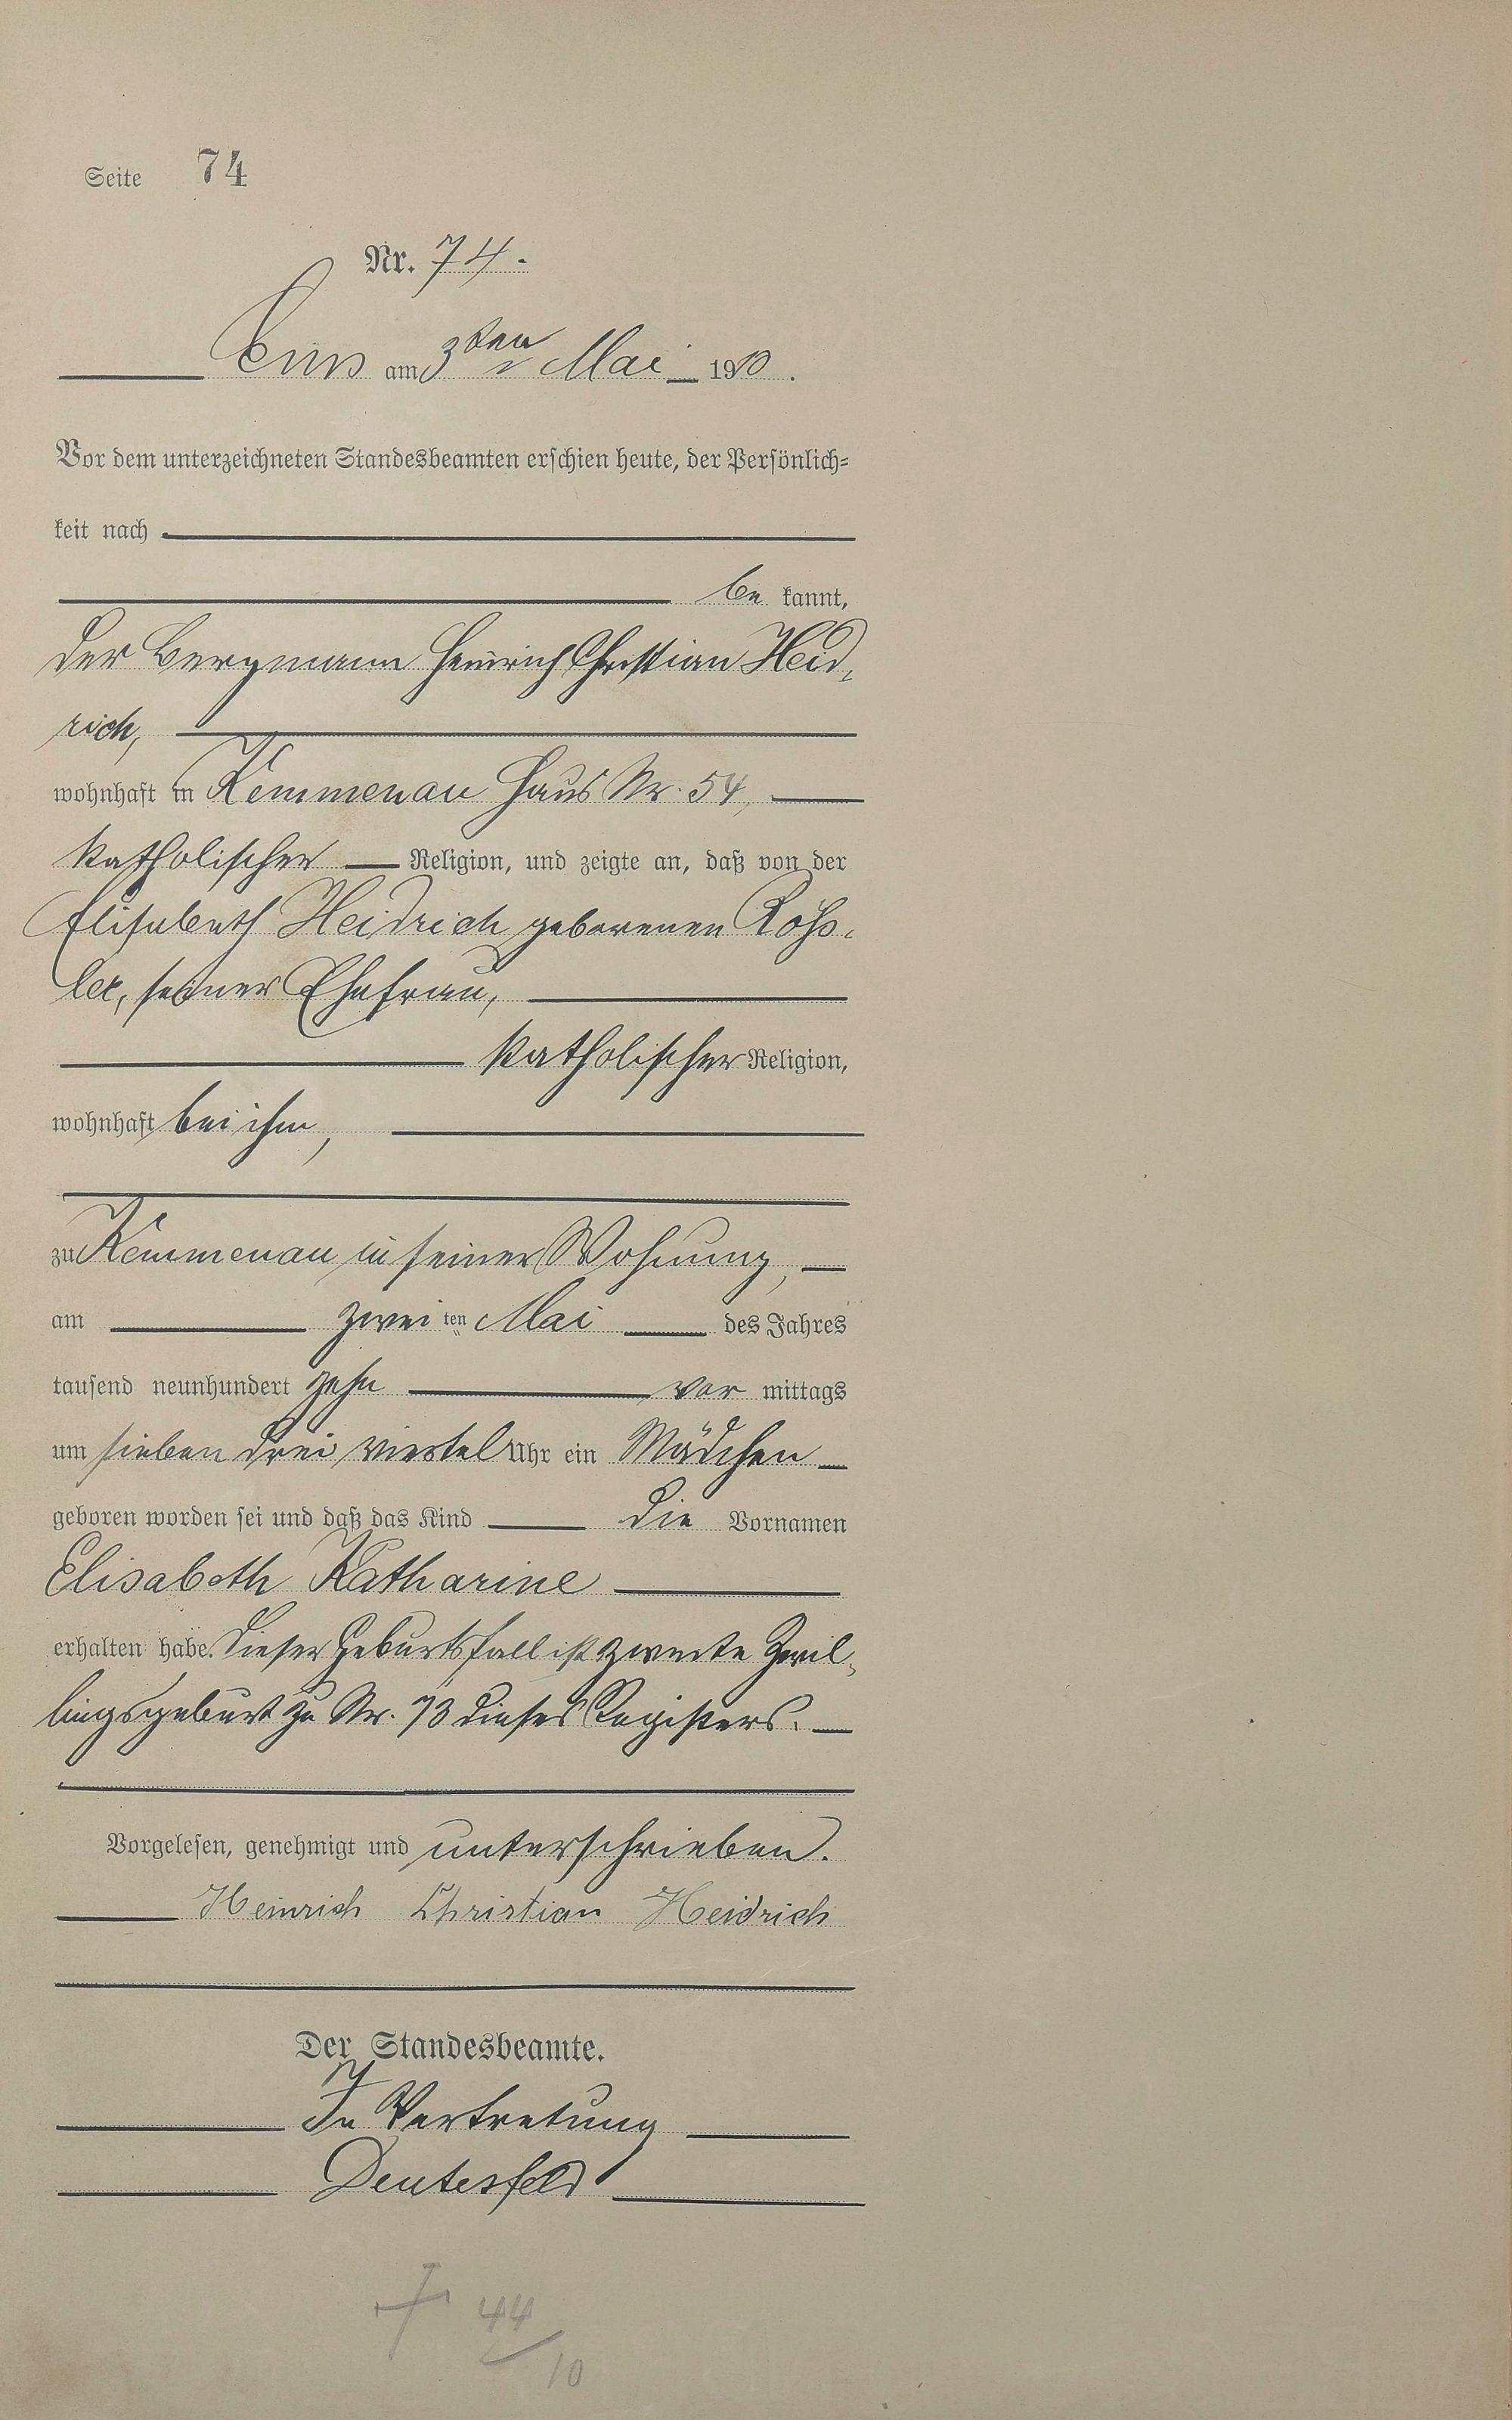 Seite 74
Nr. 74.
Ems am 3ten Mai 1910.
Vor dem unterzeichneten Standesbeamten erschien heute, der Persönlich=
keit nach
be kannt,
der Bergmann Heinrich Christian Heid,
rich,
wohnhaft in Kemmenau Haus Nr. 54,
katholischer Religion, und zeigte an, daß von der
Elisabeth Heidrich geborenen
seiner Ehefrau,
katholischer Religion,
wohnhaft bei ihm,
zu Kemmenau in seiner Wohnung,
am zwei ten Mai des Jahres
tausend neunhundert zehn vor mittags
um sieben drei viertel Uhr ein Mädchen
geboren worden sei und daß das Kind die Vornamen
Elisabeth Katharine
erhalten habe. Dieser Geburtsfall ist zweite Zwil,
lingsgeburt zu Nr. 73 dieses Registers.
Vorgelesen, genehmigt und unterschrieben.
Heinrich Christian Heidrich
Der Standesbeamte.
In Vertretung
Deutesfeld
† 44/10